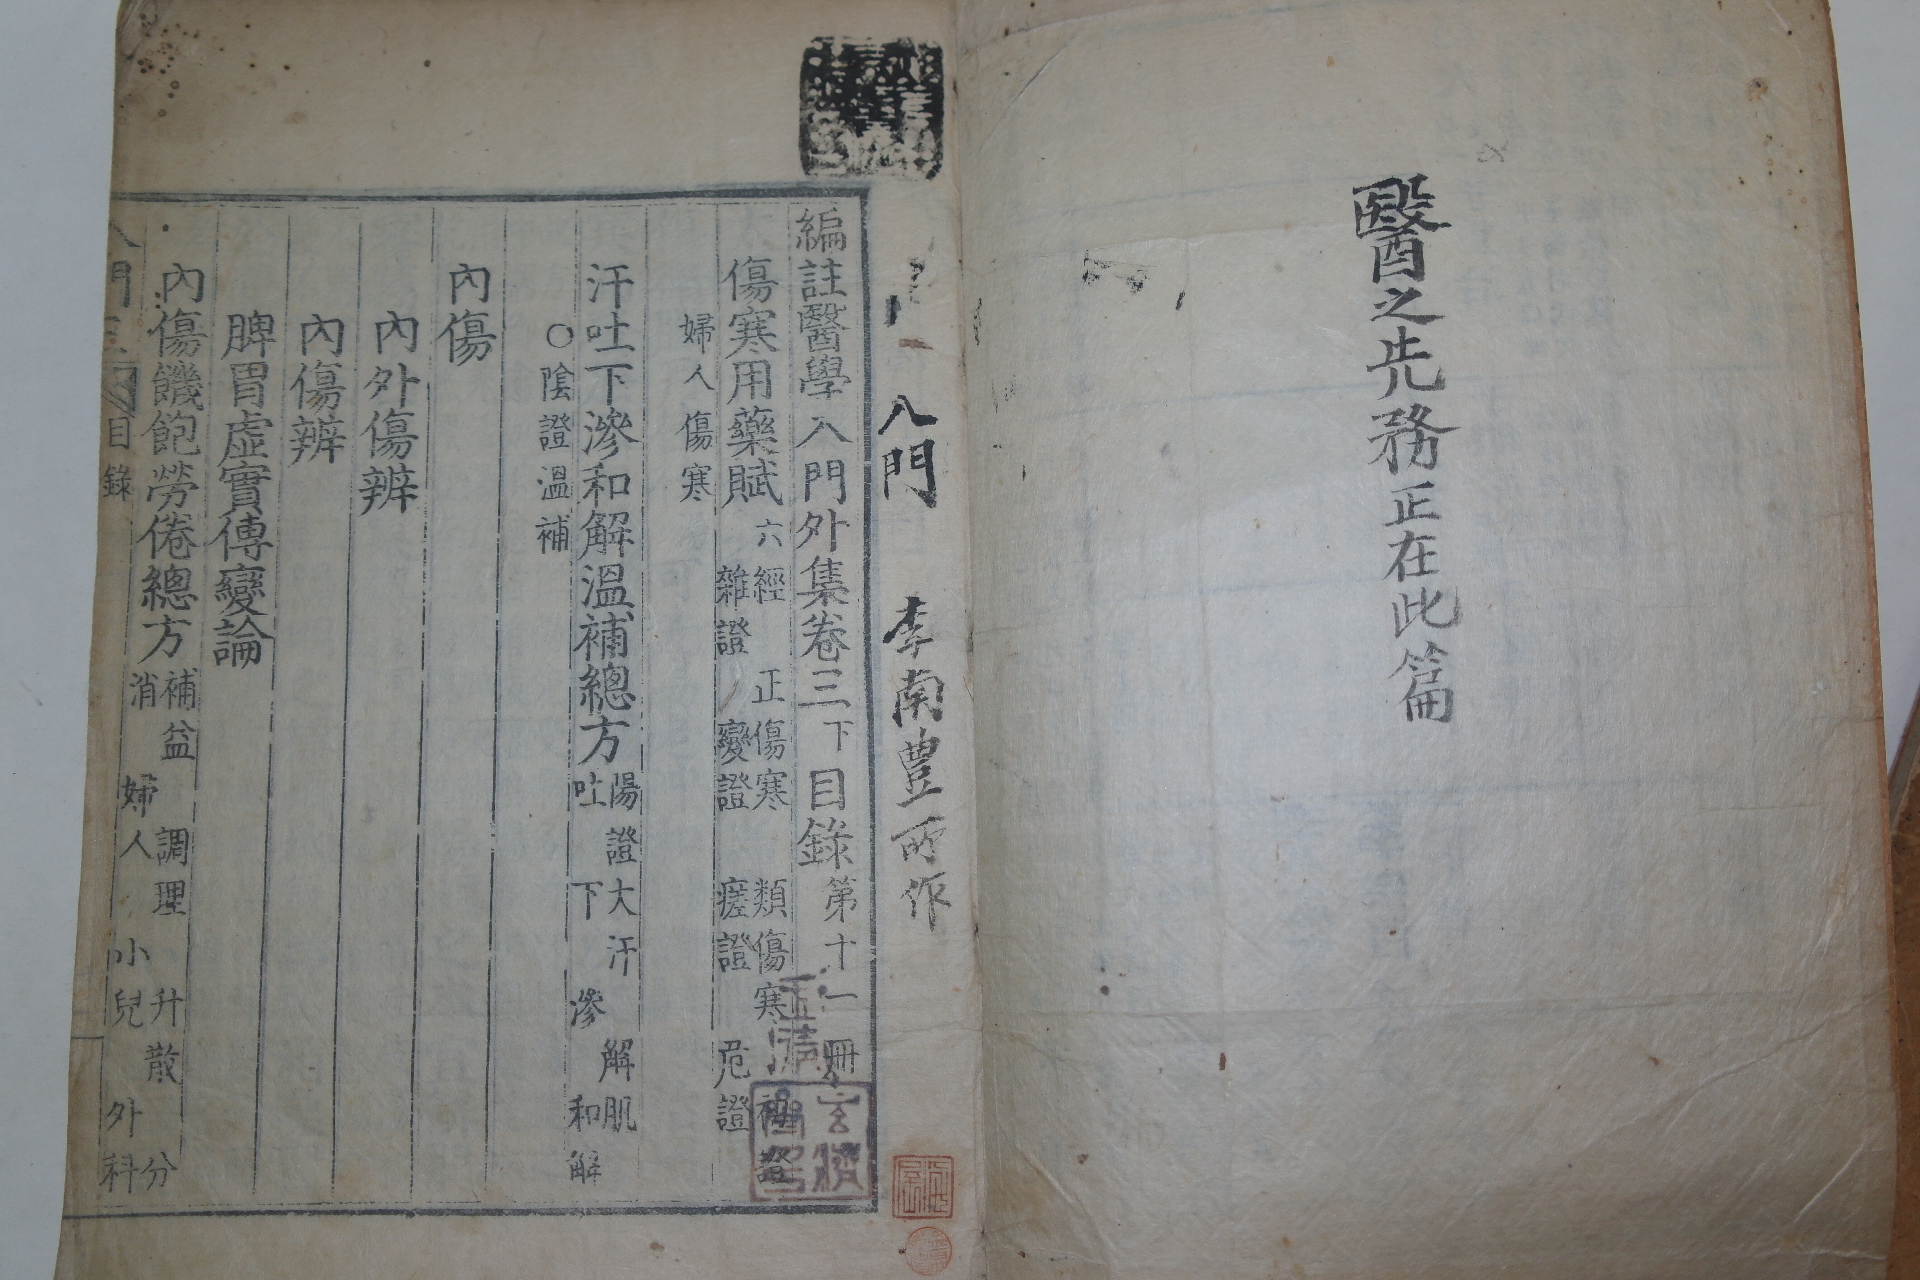 醫之先務正在此篇
入門 李南豊所作
編註醫學入門外集卷三下目錄 第十一冊
傷寒用藥賦 六經 正傷寒 類傷寒 初證
雜證 變證 瘥證 危證
婦人傷寒
汗吐下滲和解溫補總方 陽證大汗 解肌
吐 下 滲 和解
○陰證溫補
內傷
內外傷辨
內傷辨
脾胃虛實傳變論
內傷饑飽勞倦總方 補益 調理 升散 分
消 婦人 小兒 外科
目錄
玉清